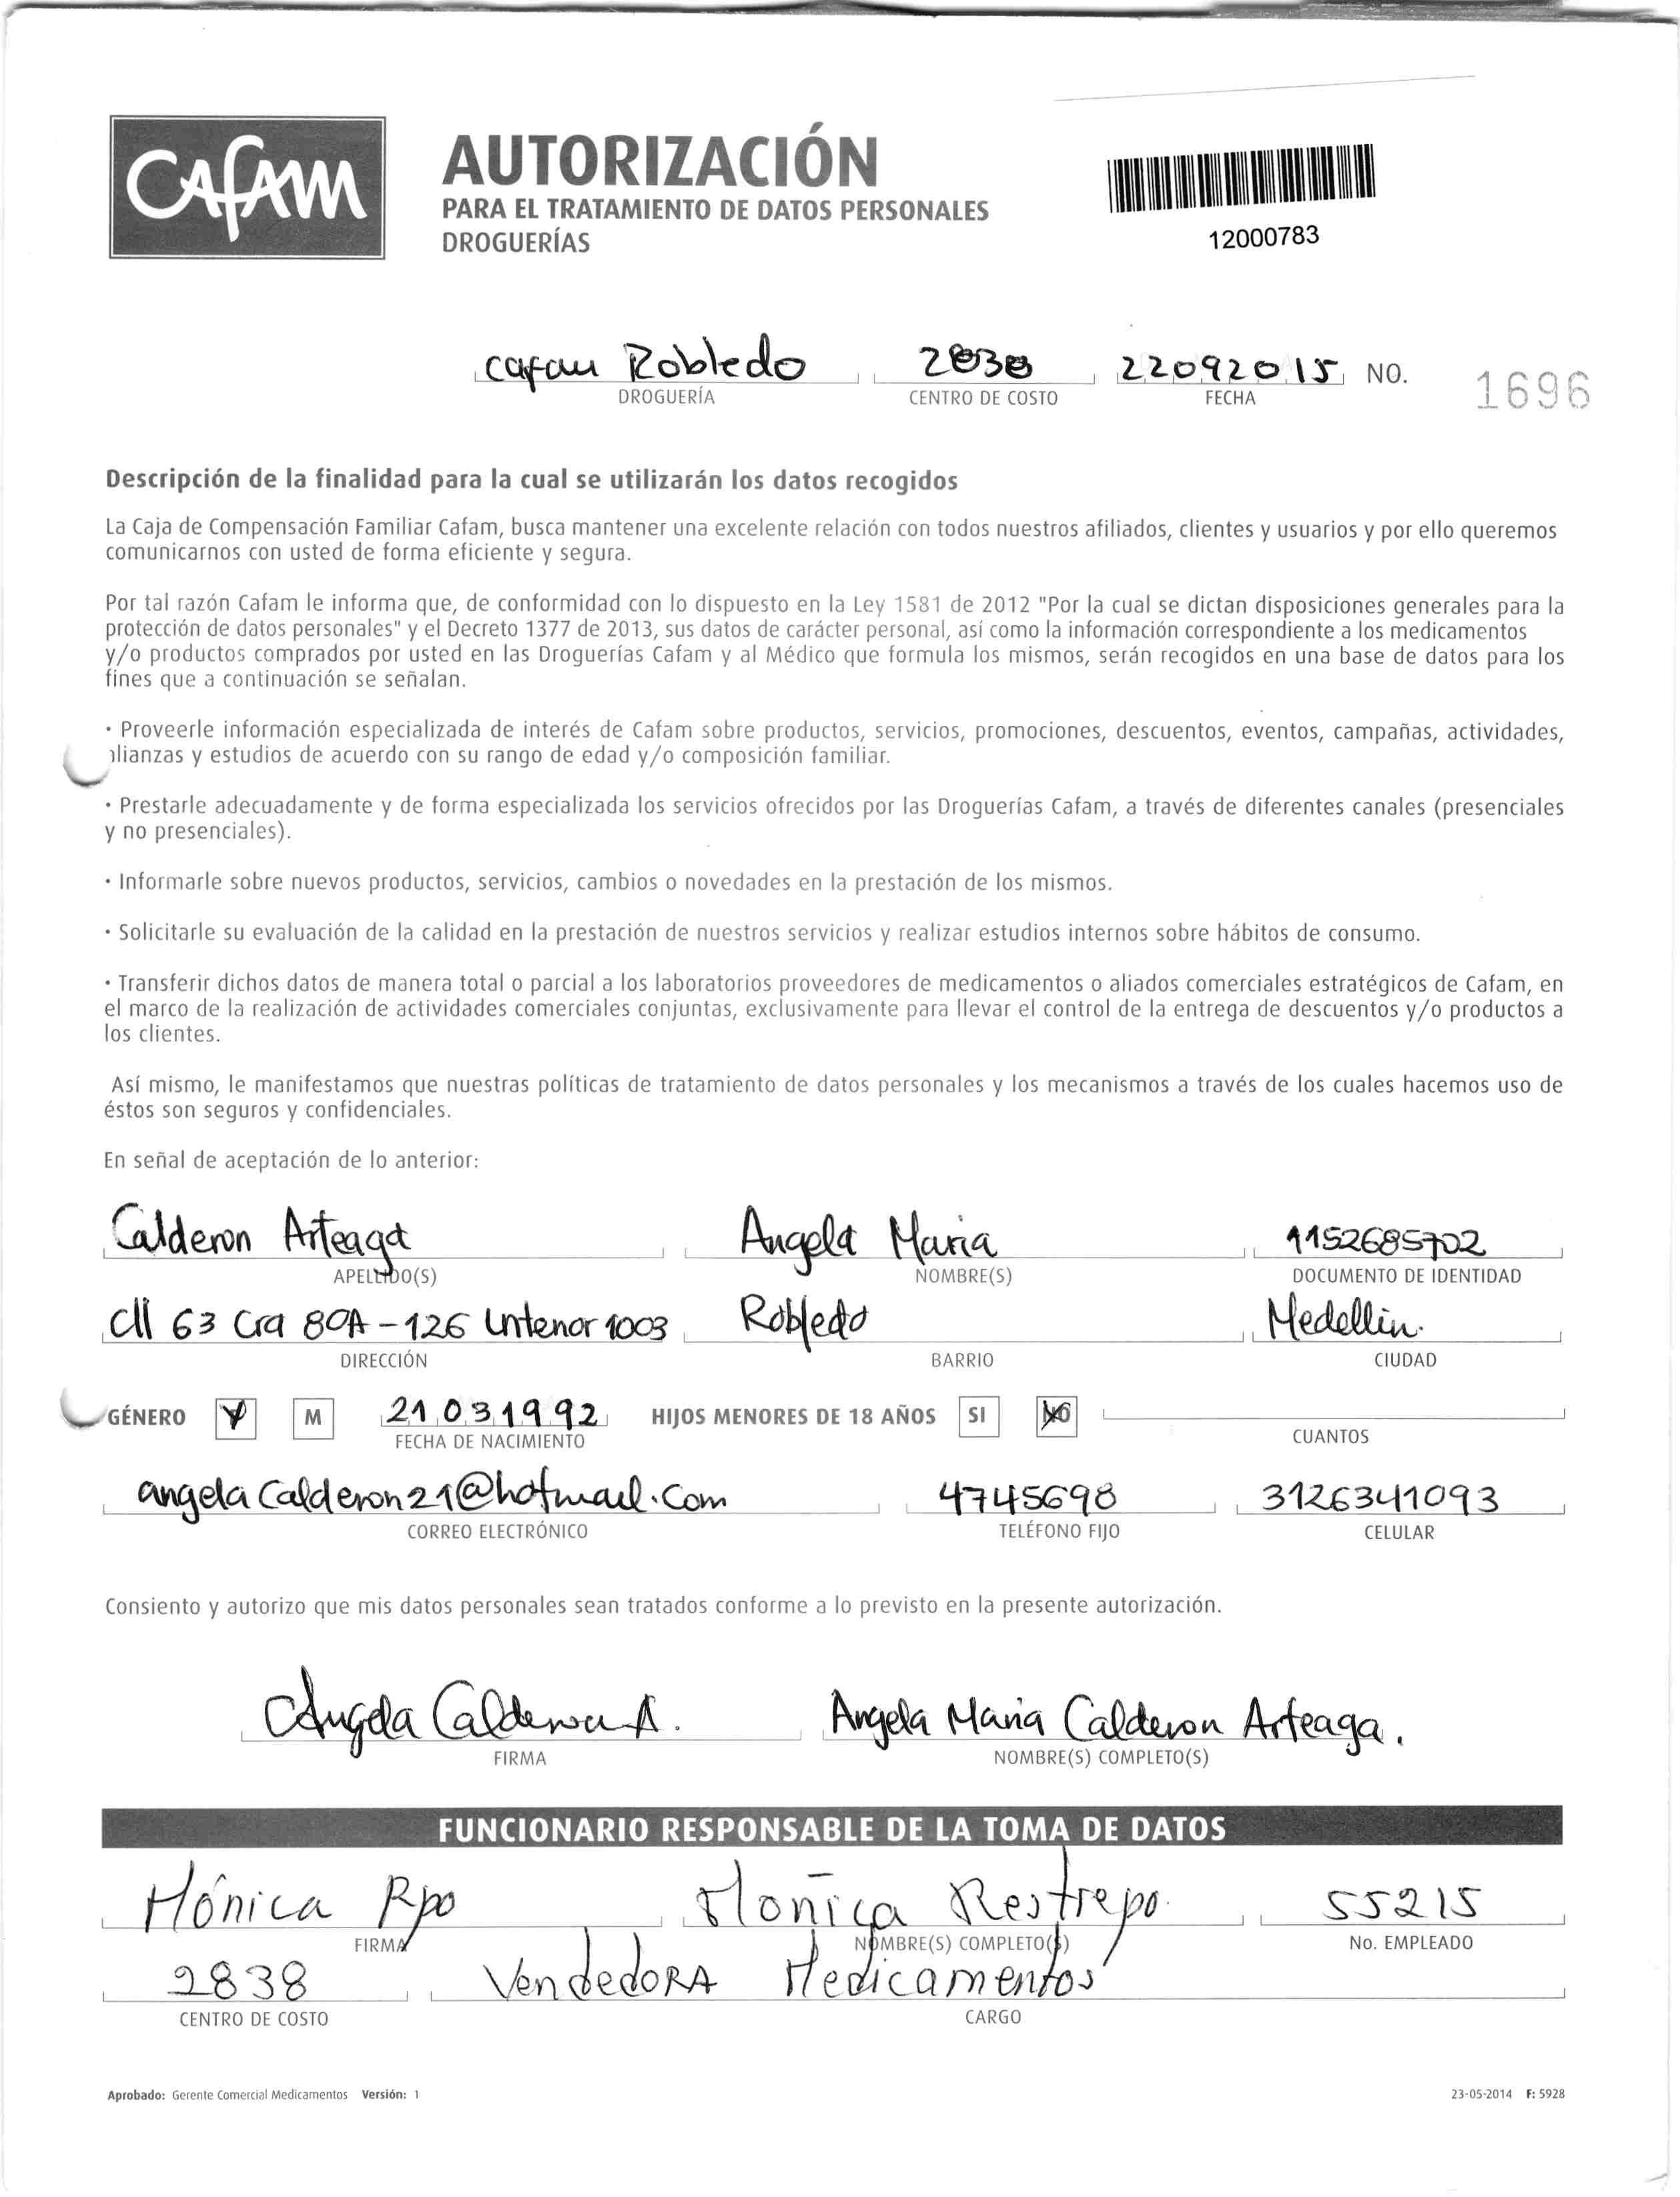 Cafam
AUTORIZACIÓN
PARA EL TRATAMIENTO DE DATOS PERSONALES
DROGUERÍAS
12000783
cafam Robledo 2838 22092015 NO. 1696
DROGUERÍA CENTRO DE COSTO FECHA
Descripción de la finalidad para la cual se utilizarán los datos recogidos
La Caja de Compensación Familiar Cafam, busca mantener una excelente relación con todos nuestros afiliados, clientes y usuarios y por ello queremos
comunicarnos con usted de forma eficiente y segura.
Por tal razón Cafam le informa que, de conformidad con lo dispuesto en la Ley 1581 de 2012 "Por la cual se dictan disposiciones generales para la
protección de datos personales" y el Decreto 1377 de 2013, sus datos de carácter personal, así como la información correspondiente a los medicamentos
y/o productos comprados por usted en las Droguerías Cafam y al Médico que formula los mismos, serán recogidos en una base de datos para los
fines que a continuación se señalan.
· Proveerle información especializada de interés de Cafam sobre productos, servicios, promociones, descuentos, eventos, campañas, actividades,
alianzas y estudios de acuerdo con su rango de edad y/o composición familiar.
· Prestarle adecuadamente y de forma especializada los servicios ofrecidos por las Droguerías Cafam, a través de diferentes canales (presenciales
y no presenciales).
· Informarle sobre nuevos productos, servicios, cambios o novedades en la prestación de los mismos.
· Solicitarle su evaluación de la calidad en la prestación de nuestros servicios y realizar estudios internos sobre hábitos de consumo.
· Transferir dichos datos de manera total o parcial a los laboratorios proveedores de medicamentos o aliados comerciales estratégicos de Cafam, en
el marco de la realización de actividades comerciales conjuntas, exclusivamente para llevar el control de la entrega de descuentos y/o productos a
los clientes.
Así mismo, le manifestamos que nuestras políticas de tratamiento de datos personales y los mecanismos a través de los cuales hacemos uso de
éstos son seguros y confidenciales.
En señal de aceptación de lo anterior:
Calderon Arteaga Angela Maria 1152685702
APELLIDO(S) NOMBRE(S) DOCUMENTO DE IDENTIDAD
cll 63 Cra 80A-126 Interior 1003 Robledo Medellin.
DIRECCIÓN BARRIO CIUDAD
GÉNERO F M 21031992 HIJOS MENORES DE 18 AÑOS SI NO
FECHA DE NACIMIENTO CUANTOS
angelaCalderon21@hotmail.com 4745698 3126341093
CORREO ELECTRÓNICO TELÉFONO FIJO CELULAR
Consiento y autorizo que mis datos personales sean tratados conforme a lo previsto en la presente autorización.
Angela Calderon A. Angela Maria Calderon Arteaga.
FIRMA NOMBRE(S) COMPLETO(S)
FUNCIONARIO RESPONSABLE DE LA TOMA DE DATOS
Mónica Rpo Monica Restrepo. 55215
FIRMA NOMBRE(S) COMPLETO(S) No. EMPLEADO
2838 VendedoRA Medicamentos
CENTRO DE COSTO CARGO
Aprobado: Gerente Comercial Medicamentos Versión: 1 23-05-2014 F: 5928